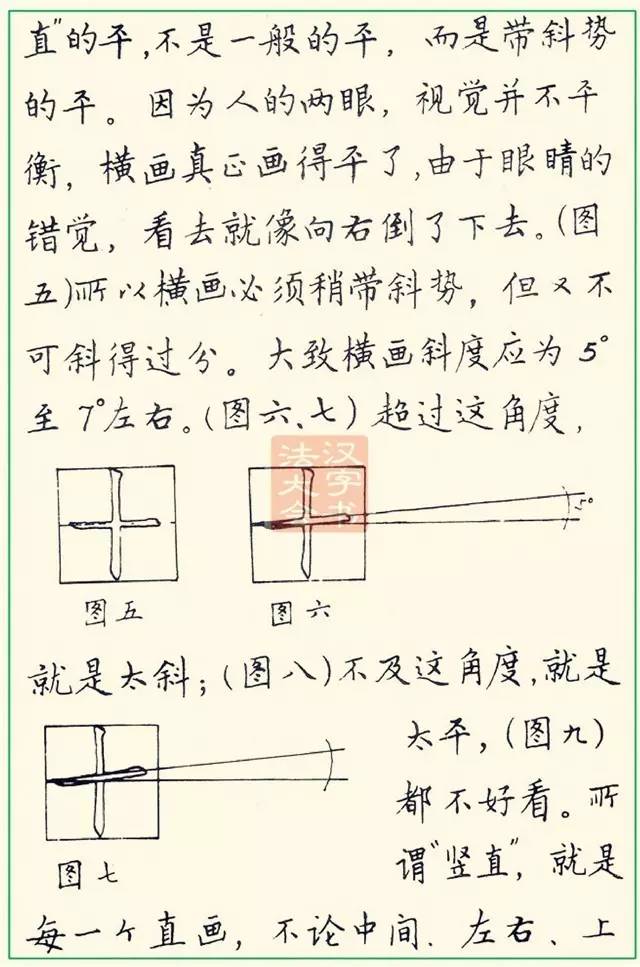 直"的平,不是一般的平，而是带斜势
的平。因为人的两眼，视觉并不平
衡，横画真正画得平了,由于眼睛的
错觉，看去就像向右倒了下去。(图
五)所以横画必须稍带斜势，但又不
可斜得过分。大致横画斜度应为5°
至7°左右。(图六、七）超过这角度，
法汉
大字
全书
5°
图五
图六
就是太斜；(图八)不及这角度,就是
太平，(图九)
都不好看。所
谓"竖直"，就是
图七
每一个直画，不论中间、左右、上